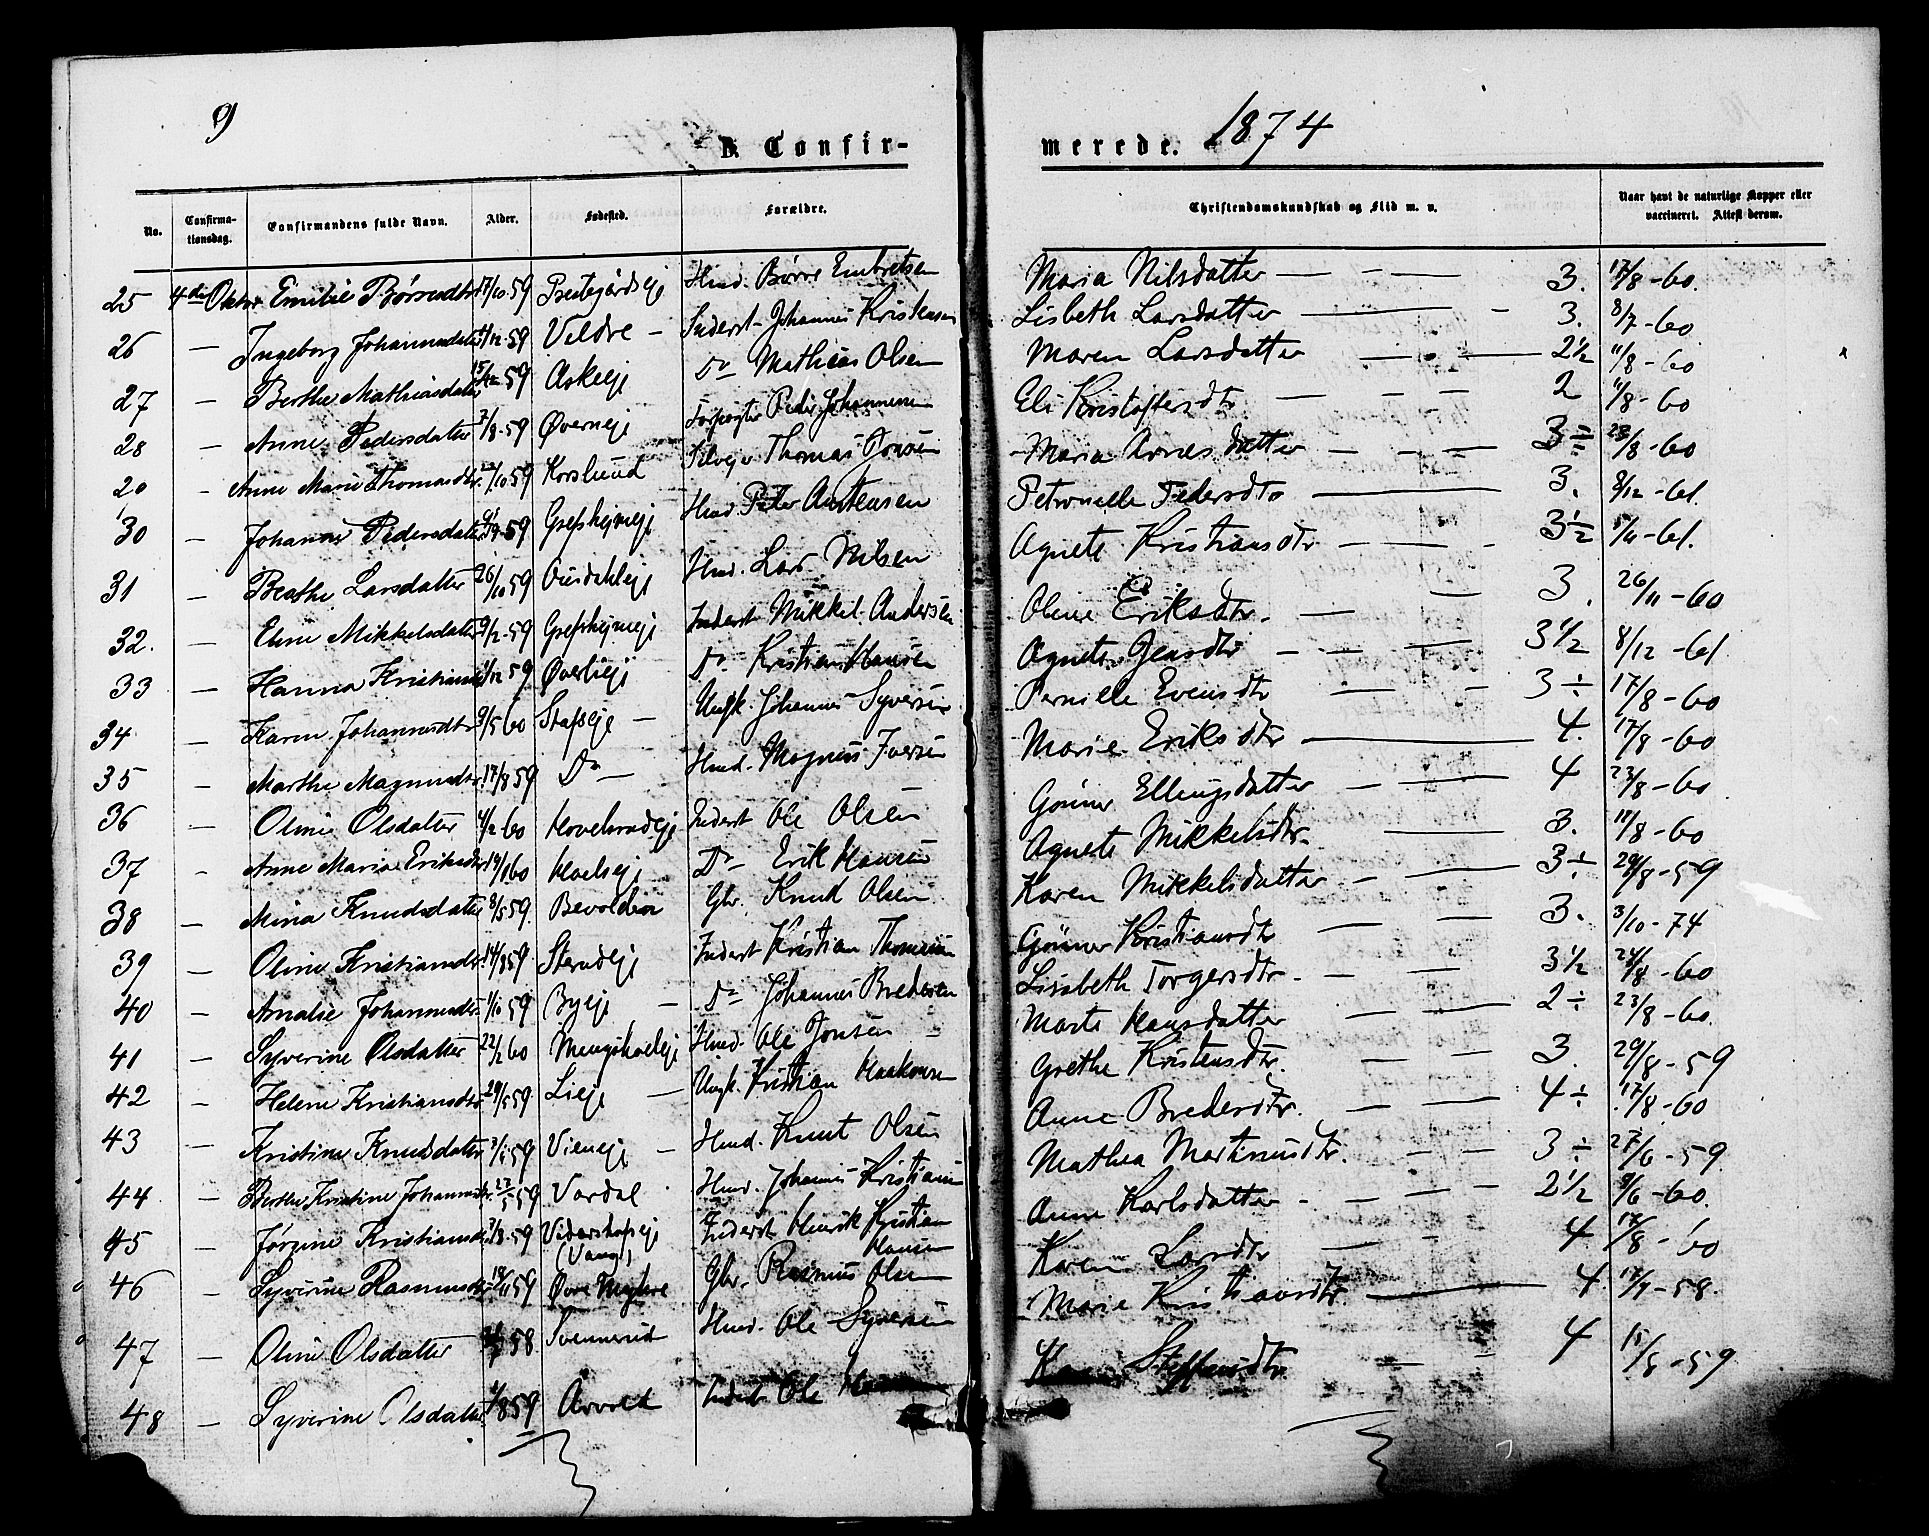 9
1874
B. Confir-
merede.
No.
Confirma-
tionsdag.
Confirmandens fulde Navn.
Alder.
Fødested.
Forældre.
Christendomskundskab og Flid m. v.
Naar havt de naturlige Kopper eller
vaccineret. Attest derom.
25 4de Oktbr Emilie Børresdtr 17/10 59 Prestegårdseje Husd. Børre Embretsen Maria Nilsdatter — — — 3. 17/8-60.
26 — Ingeborg Johannesdatter 4/12-59 Veldre — Inderst Johannes Kristensen Lisbeth Larsdatter — - 3. 8/7-60
27 — Berthe Mathiasdatter 15/12 59 Askeeje Do Mathias Olsen Maren Larsdatter — - — 2 1/2 11/8-60
28 — Anne Pedersdatter 7/8-59 Øverneje Forpagter Peder Johannesen Eli Kristoffersdtr — — — 2 11/8-60
29 - Anne Marie Thomasdtr. /10 59 Korslund Selveje Thomas Jonsen Maria Arnesdatter — — — 3÷ 23/8-60
30 — Johanne Pedersdatter 59 Grefsheimeje Husd. Peter Austensen Petronelle Pedersdtr — 3. 8/12-61
31 — Berthe Larsdatter 26/10 59 Ousdahleje Husd. Lars Nilsen Agnete Kristiansdtr — — - 3 1/2 5/11-61.
32. — Eline Mikkelsdatter 9/2-59 Grefsheimeje Inderst Mikkel Andersen Oline Eriksdtr. — — 3. 26/11-60
33 — Hanna Kristiansdtr 1/12 59 Øverlieje Do Kristian Hansen Agnete Jensdtr — — — 3 1/2 8/12-61
34 — Karen Johannesdtr 9/5 60 Stafseje — Ungk. Johannes Syversen Pernille Evensdtr — - 3÷ 17/8-60
35 — Marthe Magnusdtr 17/8 59 Do — Husd. Magnus Iversen Marie Eriksdtr — 4. 17/8-60
36 — Oline Olsdatter 4/2 60 Hovelsrudeje Inderst Ole Olsen Gønner Ellingsdatter — — — 4 23/8-60
37 — Anne Maria Eriksdtr 14/1 60 Hoelseje Do Erik Hansen Agnete Mikkelsdtr. — 3. 18/8-60
38 — Mina Knudsdatter 8/5 59. Bevolden Gbr. Knud Olsen Karen Mikkelsdatter — — — 3÷ 29/8-59
39 — Oline Kristiansdtr. 14/8 59 Stenseje Inderst Kristian Thomesen Gønner Kristiansdtr — — - 3. 3/10-74
40 — Amalie Johannesdtr 1/10 59 Byeje — Do Johannes Bredesen Lisabeth Torgersdtr. - — - 3 1/2 24/8-60
41 — Syverine Olsdatter 22/2 60 Mengshoeleje Husd. Ole Jonsen - Marte Hansdatter — — — 2÷ 23/8-60.
42 — Helene Kristiansdtr. 29/5 59 Lieje — Ungk. Kristian Haakonsen Grethe Kristensdtr. — — 3. 29/8-59
43 — Kristine Knudsdatter 3/1 59 Vieneje — Husd. Knut Olsen Anne Bredesdtr. — — — 4÷ 17/8-60
44 — Berthe Kristine Johannesdtr. 27/5 59 Vardal Husd. Johannes Kristiansen Mathea Martinusdtr. — — 3÷ 27/6-59.
45 — Jørgine Kristiansdtr 7/8-59 Viderskafseje Inderst Henrik Kristian Anne Karlsdatter - — — 2 1/2 9/6-60.
(Vang) Hansen
46 — Syverine Rasmusdtr 18/11 59 Øvre Myhre Gbr. Rasmus Olsen Karen Larsdtr — — 4 17/8-60
47 — Oline Olsdatter 58 Svennerud Husd. Ole Syversen Marie Kristiansdtr. — — 4. 17/7-58.
48 — Syverine Olsdatter /8 59 Arvold Inderst Ole Steffensdtr — — 4 15/8-59